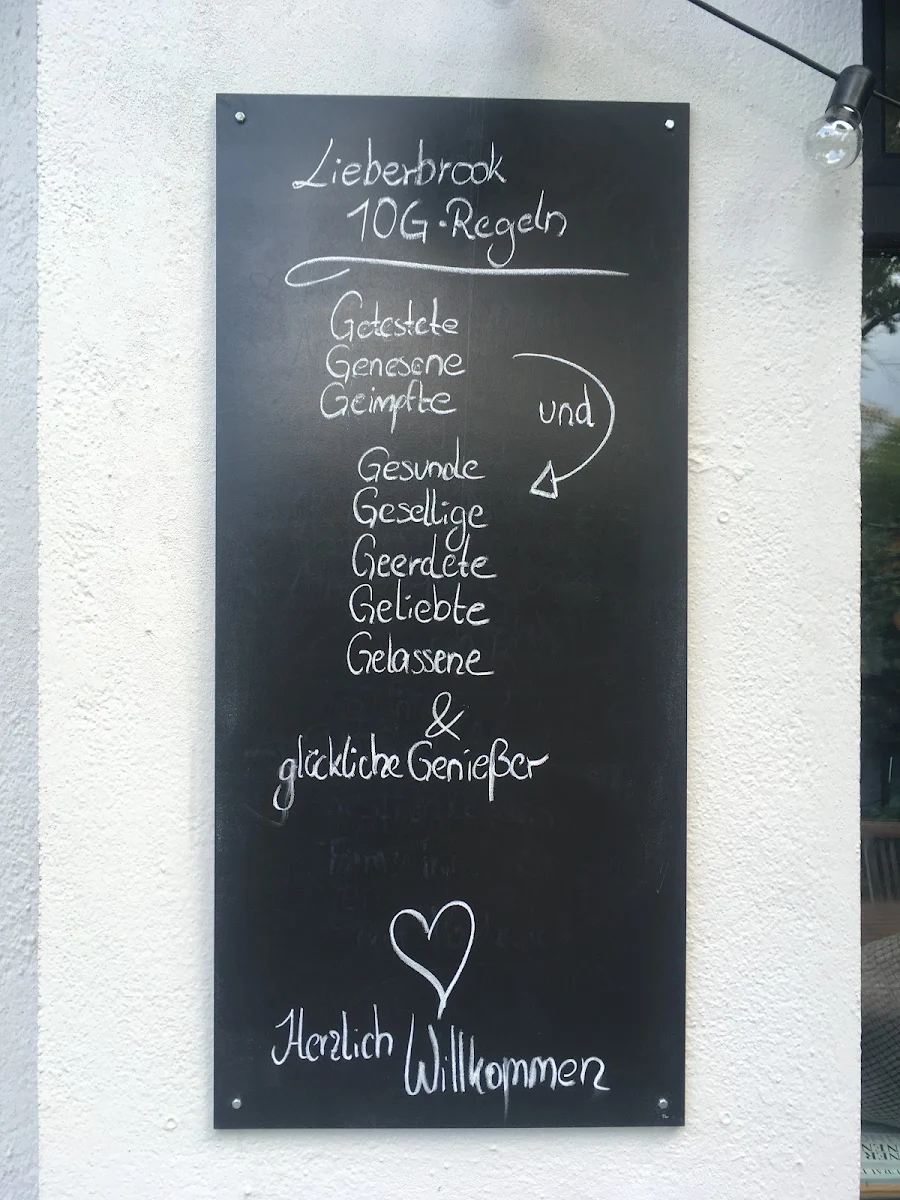 Lieberbrook
10G-Regeln
Getestete
Genesene
Geimpfte
und
Gesunde
Gesellige
Geerdete
Geliebte
Gelassene
&
glückliche Genießer
Herzlich Willkommen